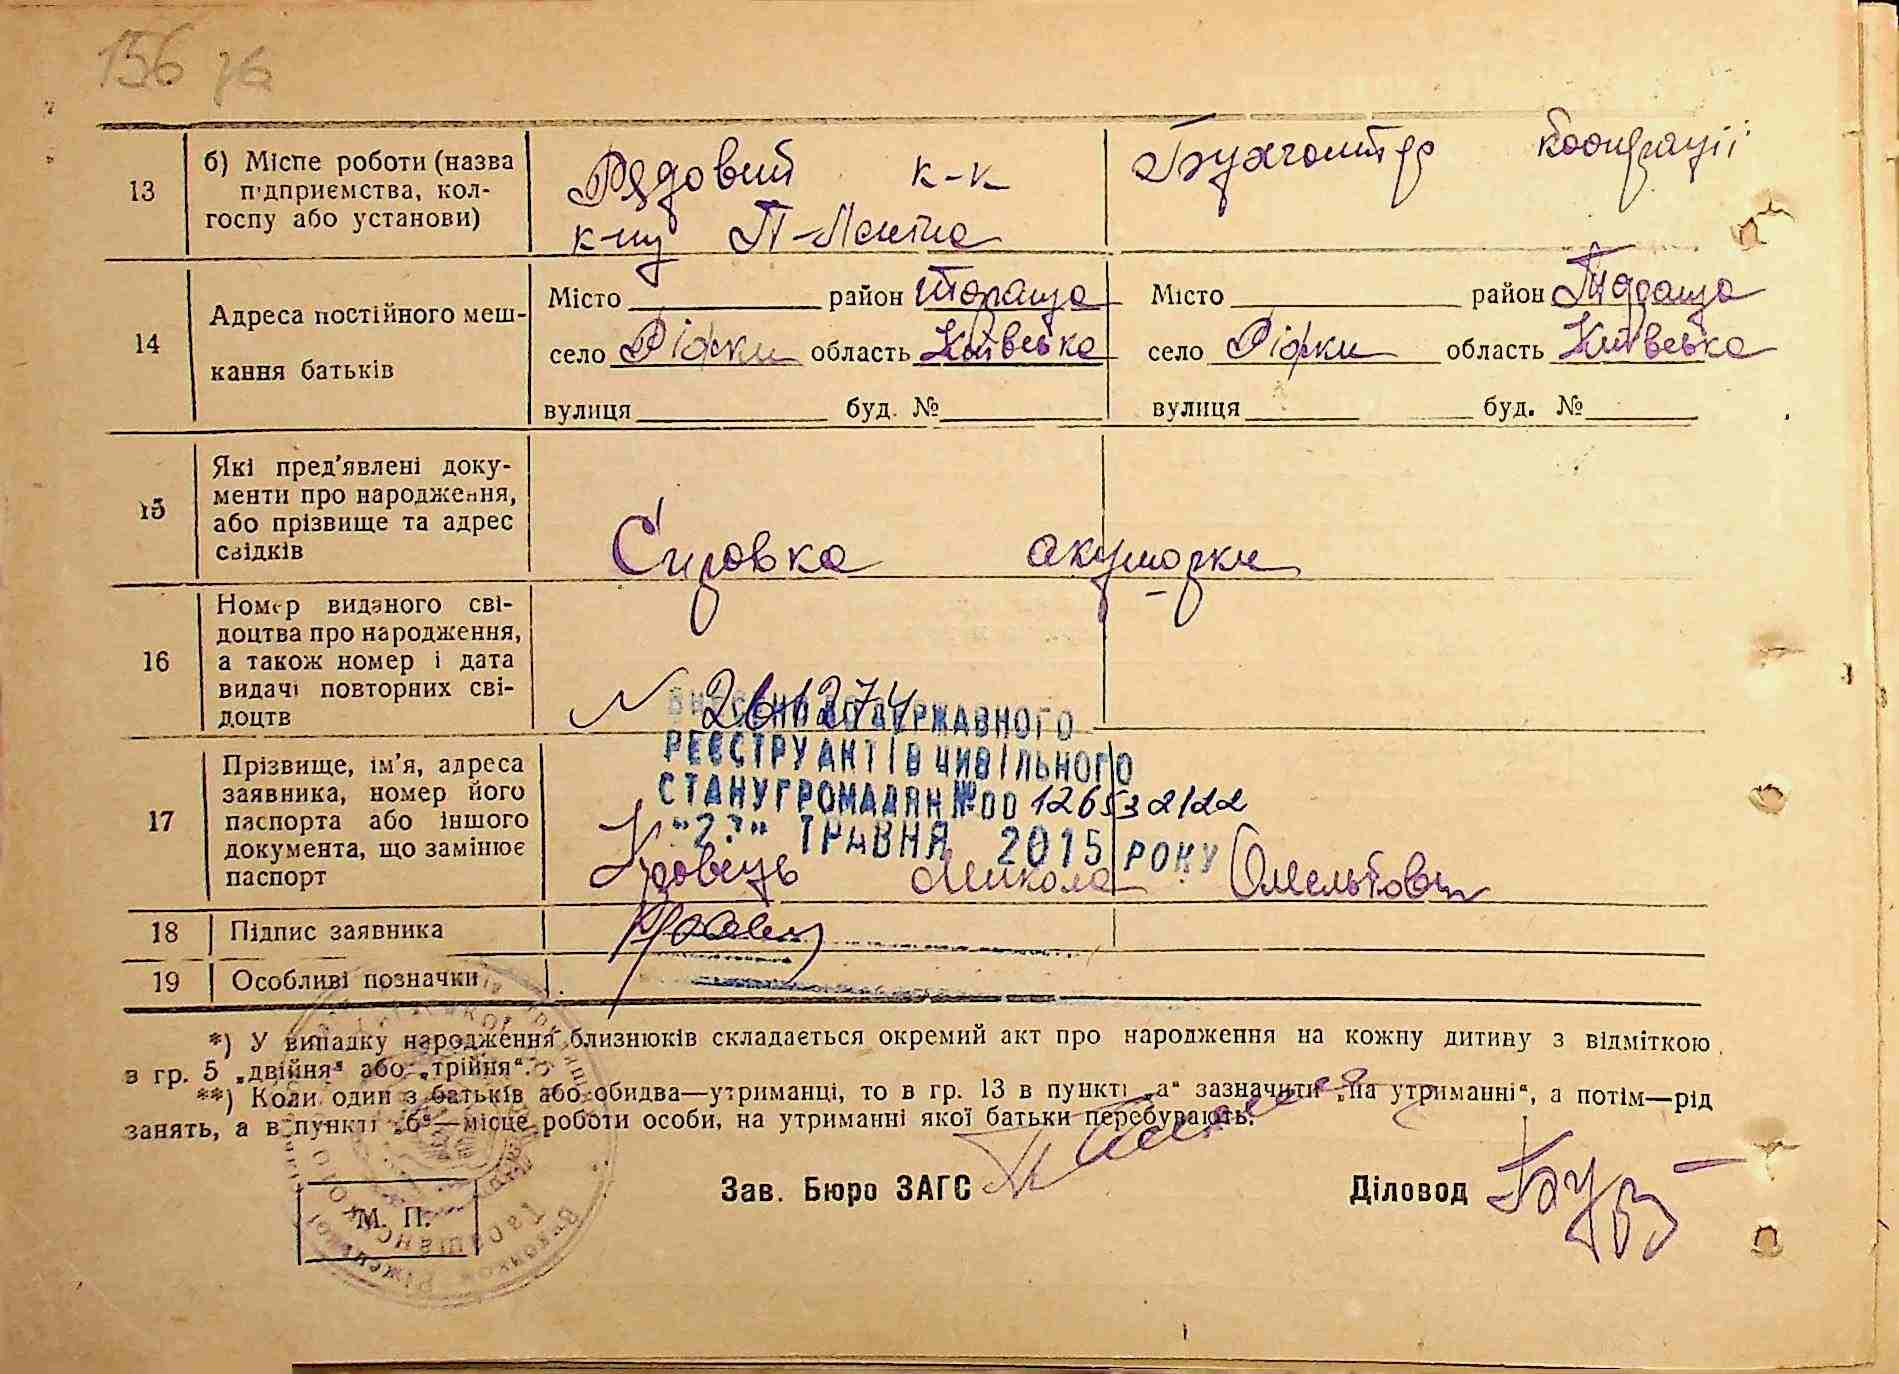 156 зв
13
б) Місце роботи (назва
підприємства, кол-
госпу або установи)
Рядовий к-к
к-пу
Бухгалтер кооперації
14
Адреса постійного меш-
кання батьків
Місто район Тараща
село Ріжки область Київська
вулиця буд. №
Місто район Тараща
село Ріжки область Київська
вулиця буд. №
15
Які пред'явлені доку-
менти про народження,
або прізвище та адрес
свідків
Справка акушорки
16
Номер виданого сві-
доцтва про народження,
а також номер і дата
видачі повторних сві-
доцтв
N 261274
ВНЕСЕНО ДО ДЕРЖАВНОГО
РЕЄСТРУ АКТІВ ЦИВІЛЬНОГО
СТАНУ ГРОМАДЯН №00126532122
ТРАВНЯ 2015 РОКУ
17
Прізвище, ім'я, адреса
заявника, номер його
паспорта або іншого
документа, що замінює
паспорт
Кравець Микола Омельтович
18
Підпис заявника
19
Особливі позначки
*) У випадку народження близнюків складається окремий акт про народження на кожну дитину з відміткою
в гр. 5 „двійня“ або „трійня“.
**) Коли один з батьків або обидва—утриманці, то в гр. 13 в пункті „а“ зазначити „на утриманні“, а потім—рід
занять, а в пункті „б“—місце роботи особи, на утриманні якої батьки перебувають.
Зав. Бюро ЗАГС
Діловод
М. П.